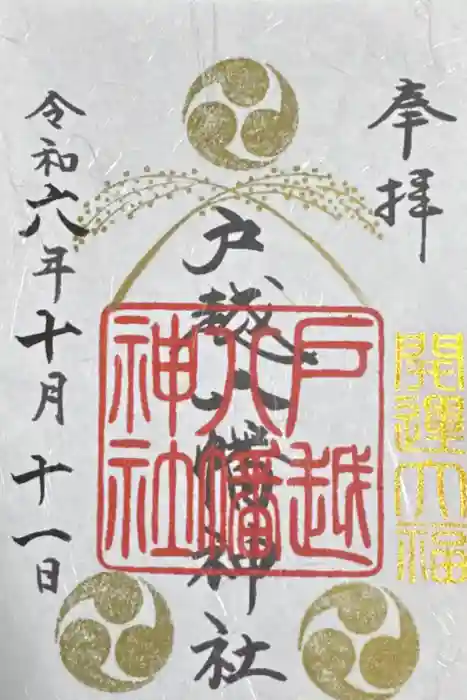 奉拝
開運大福
戸越八幡神社
戸越
八幡
神社
令和六年十月十一日